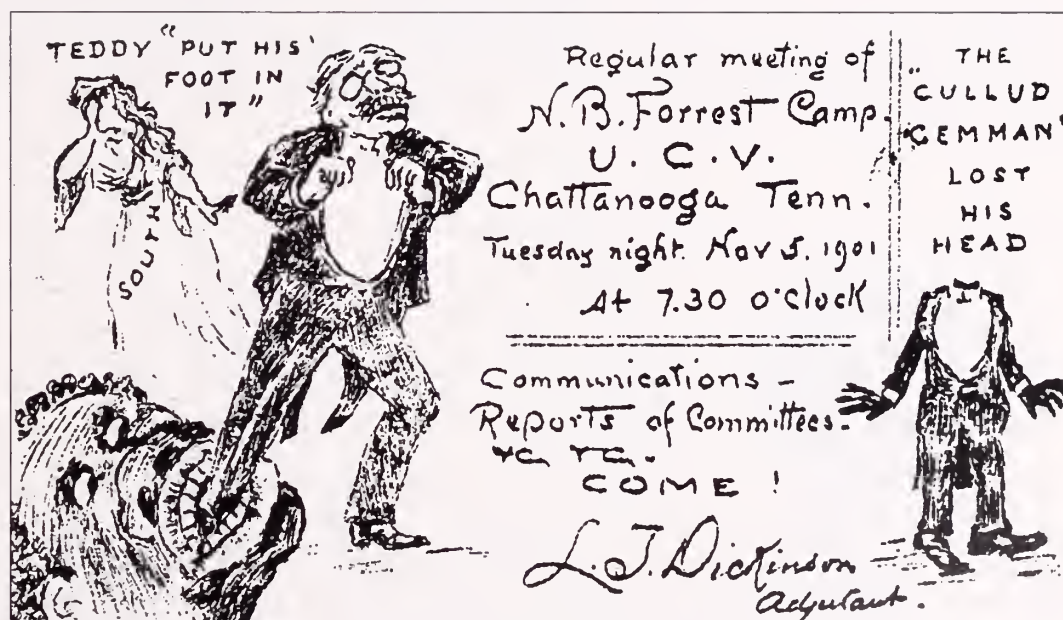 TEDDY "PUT HIS'
FOOT IN
IT"
SOUTH
Regular meeting of
N. B. Forrest Camp.
U. C. V.
Chattanooga Tenn.
Tuesday night. Nov 5. 1901
At 7.30 o'clock
Communications -
Reports of Committees.
&c &c.
COME !
L. J. Dickinson
Adjutant.
THE
"CULLUD
GEMMAN"
LOST
HIS
HEAD